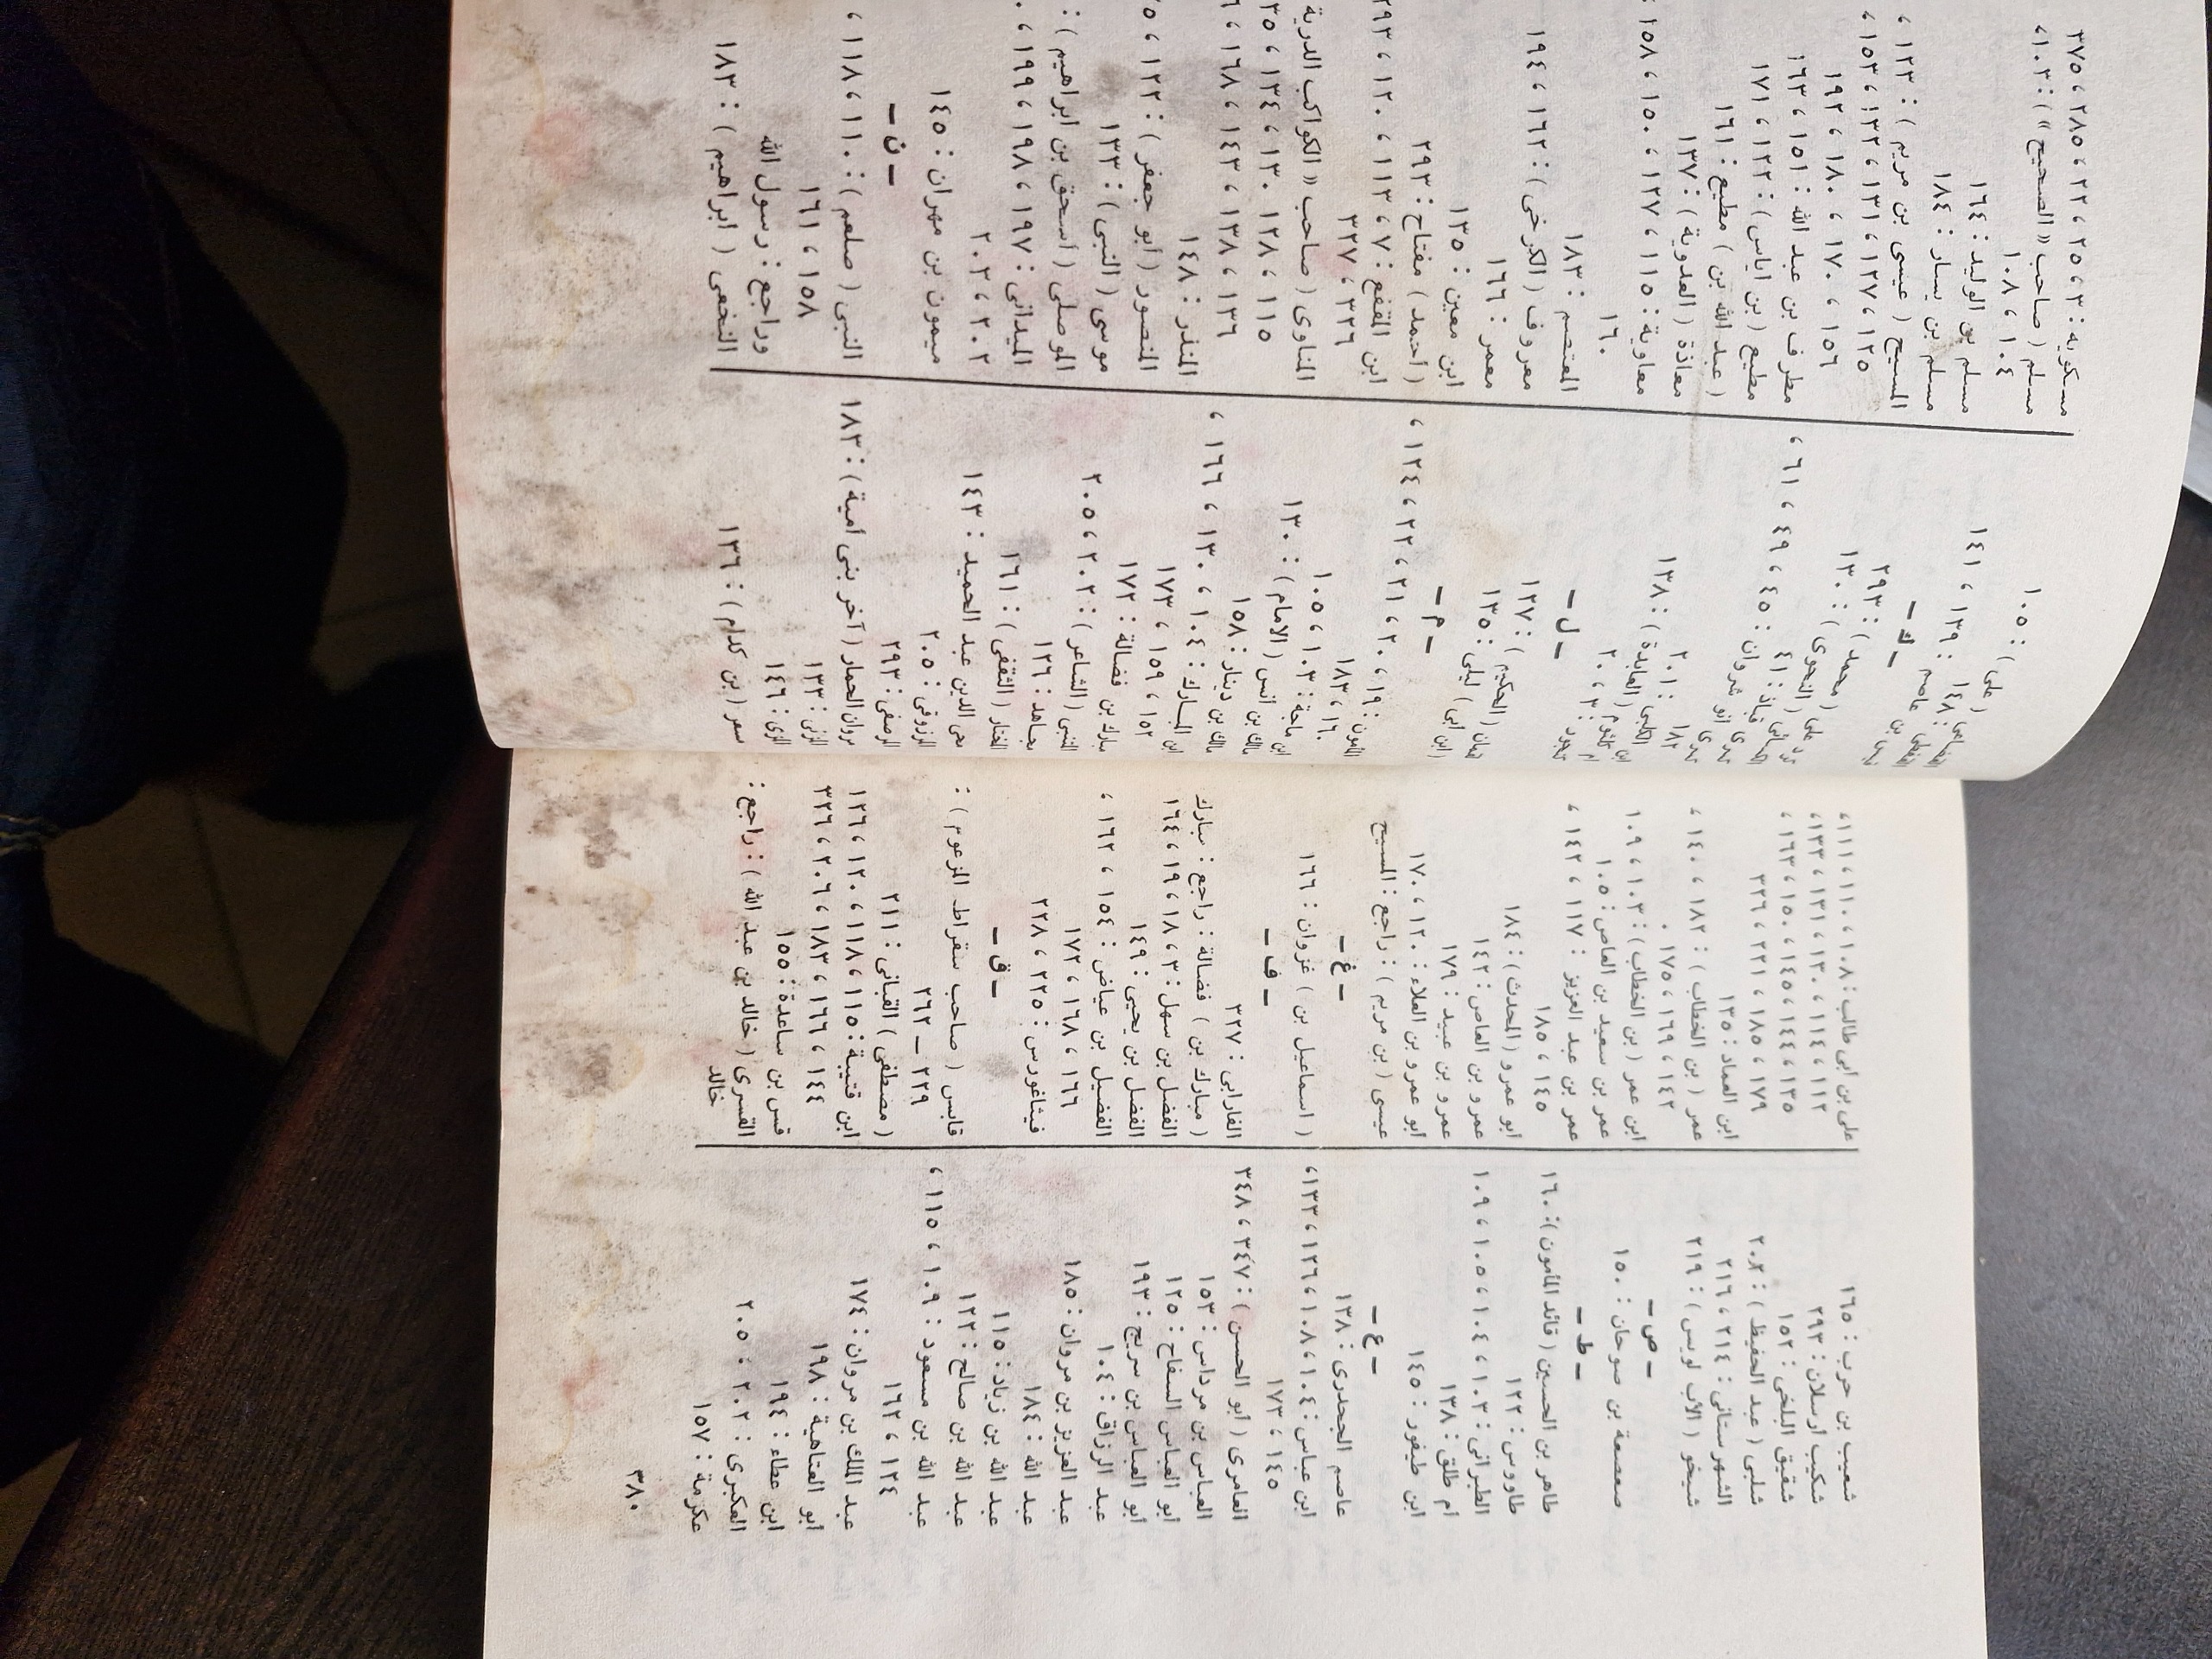 شعيب بن حرب : ١٦٥
شكيب أرسلان : ٢٩٣
شقيق البلخى : ١٥٢
شلبى ( عبد الحفيظ ) : ٢٠٢
الشهرستانى : ٢١٤ ، ٢١٦
شيخو ( الأب لويس ) : ٢١٩
– ص –
صعصعة بن صوحان : ١٥٠
– ط –
طاهر بن الحسين ( قائد المأمون ) : ١٦٠
طاووس : ١٢٢
الطبرانى : ١٠٣ ، ١٠٤ ، ١٠٥ ، ١٠٩
أم طلق : ١٣٨
ابن طيفور : ١٤٥
– ع –
عاصم الجحدرى : ١٣٨
ابن عباس : ١٠٤ ، ١٠٨ ، ١٢٦ ، ١٣٣ ،
١٤٥ ، ١٧٣
العامرى ( أبو الحسن ) : ٣٤٧ ، ٣٤٨
العباس بن مرداس : ١٥٣
أبو العباس السفاح : ١٢٥
أبو العباس بن سريج : ١٩٣
عبد الرزاق : ١٠٤
عبد العزيز بن مروان : ١٨٥
عبد الله : ١٨٤
عبد الله بن زياد : ١١٥
عبد الله بن صالح : ١٢٢
عبد الله بن مسعود : ١٠٩ ، ١١٥ ،
١٢٤ ، ١٦٢
عبد الملك بن مروان : ١٧٤
أبو العتاهية : ١٩٨
ابن عطاء : ١٩٤
العكبرى : ٢٠٢ ، ٢٠٥
عكرمة : ١٥٧
على بن أبى طالب : ١٠٨ ، ١١٠ ، ١١١ ،
١١٢ ، ١١٤ ، ١٣٠ ، ١٣١ ، ١٣٣ ،
١٣٥ ، ١٤٤ ، ١٤٥ ، ١٥٠ ، ١٦٣ ،
١٧٩ ، ١٨٥ ، ٢٢١ ، ٣٢٦
ابن العماد : ١٣٥
عمر ( بن الخطاب ) : ١٨٢ ، ١٤٠ ،
١٤٢ ، ١٦٩ ، ١٧٥ .
ابن عمر ( بن الخطاب ) : ١٠٣ ، ١٠٩
عمر بن سعيد بن العاص : ١٠٥
عمر بن عبد العزيز : ١١٧ ، ١٤٢ ،
١٤٥ ، ١٨٥
أبو عمرو ( المحدث ) : ١٨٤
عمرو بن العاص : ١٤٢
عمرو بن عبيد : ١٧٩
أبو عمرو بن العلاء : ١٢٠ ، ١٧٠
عيسى ( بن مريم ) : راجع : المسيح
– غ –
( اسماعيل بن ) غزوان : ١٦٦
– ف –
الفارابى : ٣٢٧
( مبارك بن ) فضالة : راجع : مبارك
الفضل بن سهل : ٣ ، ١٨ ، ١٩ ، ١٦٤
الفضل بن يحيى : ١٤٩
الفضيل بن عياض : ١٥٤ ، ١٦٢ ،
١٦٦ ، ١٦٨ ، ١٧٢
فيثاغورس : ٢٢٥ ، ٢٢٨
– ق –
قابس ( صاحب سقراط المزعوم ) :
٢٢٩ – ٢٦٢
( مصطفى ) القبانى : ٢١١
ابن قتيبة : ١١٥ ، ١١٨ ، ١٢٠ ، ١٢٦
١٤٤ ، ١٦٦ ، ١٨٣ ، ٢٠٦ ، ٣٢٦
قس بن ساعدة : ١٥٥
القسرى ( خالد بن عبد الله ) : راجع :
خالد
٣٨٠
( على ) : ١٠٥
١٤٨ : ١٣٩ ، ١٤١
بن عاصم
– ك –
( محمد ) : ٢٩٣
( النحوى ) : ١٣٠
٤١ : قباذ
أنو شروان : ٤٥ ، ٤٩ ، ٦١ ،
١٨٢
٢٠١ :
( العابدة ) : ١٣٨
٣ ، ٢٠
– ل –
( الحكيم ) : ١٢٧
ليلى : ١٣٥
– م –
١٩ ، ٢٠ ، ٢١ ، ٢٢ ، ١٢٤ ،
١٦٠ ، ١٨٣
ابن ماجة : ١٠٣ ، ١٠٥
بن أنس ( الامام ) : ١٣٠
بن دينار : ١٥٨
ابن المبارك : ١٠٤ ، ١٣٠ ، ١٦٦ ،
١٥٢ ، ١٥٩ ، ١٧٣
مبارك بن فضالة : ١٧٢
( الشاعر ) : ٢٠٢ ، ٢٠٥
مجاهد : ١٢٦
المختار ( الثقفى ) : ١٦١
محى الدين عبد الحميد : ١٤٣
المرزوقى : ٢٠٥
المرصفى : ٢٩٣
مروان الحمار ( آخر بنى أمية ) : ١٨٣
المزنى : ١٣٣
١٤٦
مسعر ( بن كدام ) : ١٣٦
مسكويه : ٣ ، ٢٥ ، ٢٢ ، ٢٨٥ ، ٣٧٥
مسلم ( صاحب « الصحيح » ) : ١٠٣ ،
١٠٤ ، ١٠٨
مسلم بن الوليد : ١٦٤
مسلم بن يسار : ١٨٤
المسيح ( عيسى بن مريم ) : ١٢٣ ،
١٢٥ ، ١٢٧ ، ١٣١ ، ١٣٢ ، ١٥٣ ،
١٥٦ ، ١٧٠ ، ١٨٠ ، ١٩٢
مطرف بن عبد الله : ١٥١ ، ١٦٣
مطيع ( بن اياس ) : ١٢٢ ، ١٧١
( عبد الله بن ) مطيع : ١٦١
معاذة ( العدوية ) : ١٣٧
معاوية : ١١٥ ، ١٢٧ ، ١٥٠ ، ١٥٨ ،
١٦٠
المعتصم : ١٨٣
معروف ( الكرخى ) : ١٦٢ ، ١٩٤
معمر : ١٦٦
ابن معين : ١٣٥
( أحمد ) مفتاح : ٢٩٣
ابن المقفع : ٧ ، ١١٣ ، ١٢٠ ، ٢٩٣
٣٢٦ ، ٣٢٧
المناوى ( صاحب « الكواكب الدرية
١١٥ ، ١٢٨ ، ١٣٠ ، ١٣٤ ،
١٣٦ ، ١٣٨ ، ١٤٣ ، ١٦٨ ،
المنذر : ١٤٨
المنصور ( أبو جعفر ) : ١٢٢ ،
موسى ( النبى ) : ١٣٣
الموصلى ( اسحق بن ابراهيم ) :
الميدانى : ١٩٧ ، ١٩٨ ، ١٩٩ ،
٢٠٢ ، ٢٠٣
ميمون بن مهران : ١٤٥
– ن –
النبى ( صلعم ) : ١١٠ ، ١١٨ ،
١٥٨ ، ١٦١
وراجع : رسول الله
النخعى ( ابراهيم ) : ١٨٣